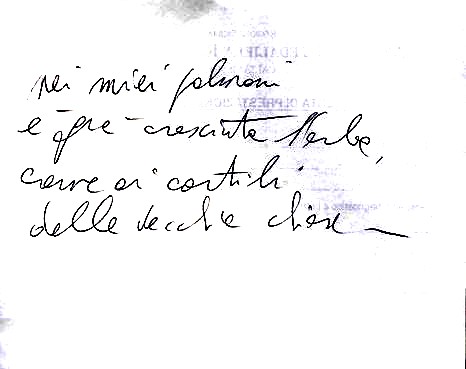 nei miei polmoni
è già cresciuta l'erba,
come ai cortili
delle vecchie chiese